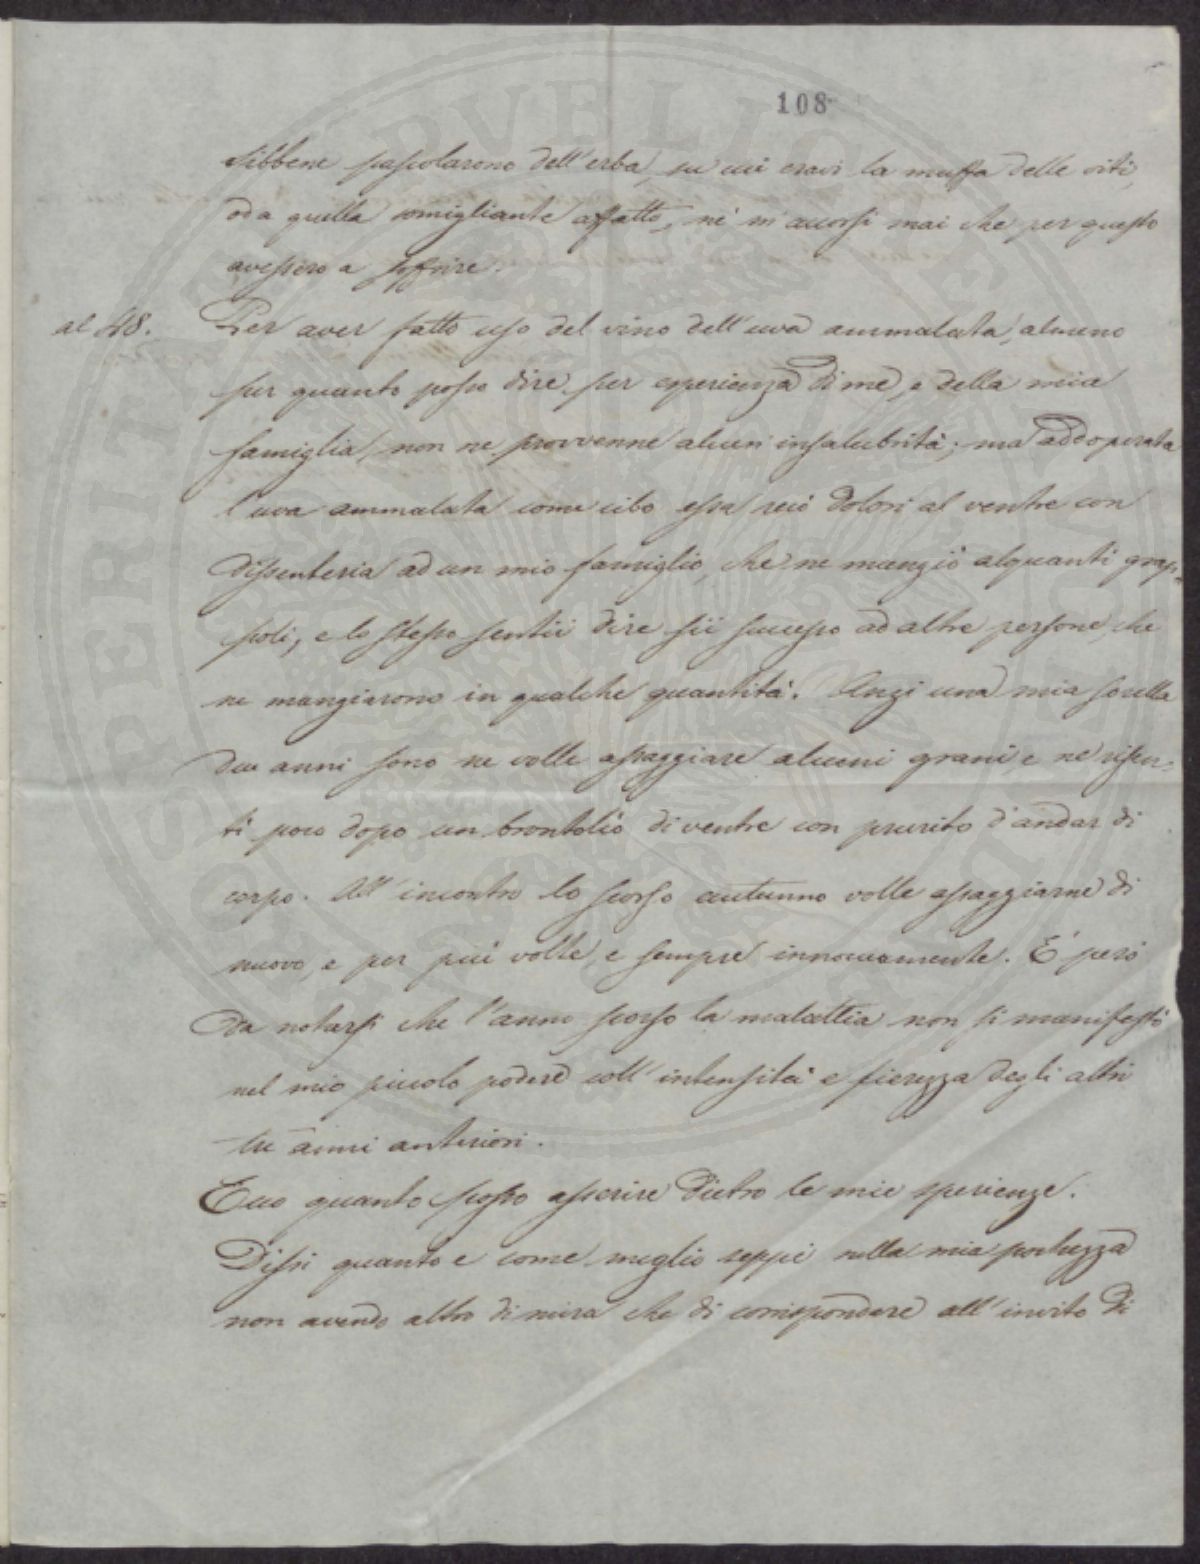 108
sibbene pascolarono dell'erba, su cui eravi la muffa delle viti,
od a quella somigliante affatto, nè m'accorsi mai che per questo
avessero a soffrire.
al 48. Per aver fatto uso del vino dell'uva ammalata, almeno
per quanto posso dire per esperienza di me, e della mia
famiglia, non ne provvenne alcun' insalubrità; ma addoperata
l'uva ammalata come cibo essa recò dolori al ventre con
dissenteria ad un mio famiglio, che ne mangiò alquanti grap-
poli, e lo stesso sentii dire sii successo ad altre persone, che
ne mangiarono in qualche quantità. Anzi una mia sorella
due anni sono ne volle assaggiare alcuni grani, e ne risen-
tì poco dopo un brontolìo di ventre con prurito d'andar di
corpo. All'incontro lo scorso autunno volle assaggiarne di
nuovo, e per più volte, e sempre innocuamente. È però
da notarsi che l'anno scorso la malattia non si manifestò
nel mio piccolo podere coll'intensità e fierezza degli altri
tre anni anteriori.
Ecco quanto posso asserire dietro le mie sperienze.
Dissi quanto e come meglio seppi nella mia pochezza
non avendo altro di mira che di corrispondere all'invito di